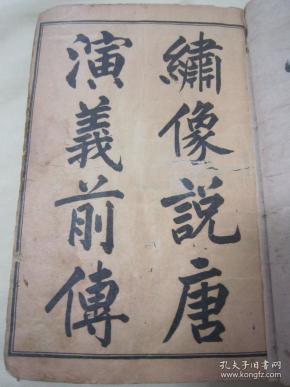 繡像説唐
演義前傳
孔夫子旧书网